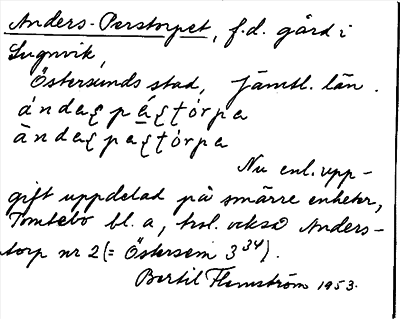 Anders-Perstorpet, f.d. gård i
Lugnvik,
Östersunds stad, Jämtl. län.
Nu enl. upp-
gift uppdelad på smärre enheter,
Tomtebo bl. a, trol. också Anders-
torp nr 2 (= Östersem 3³⁴).
Bertil Flemström 1953.